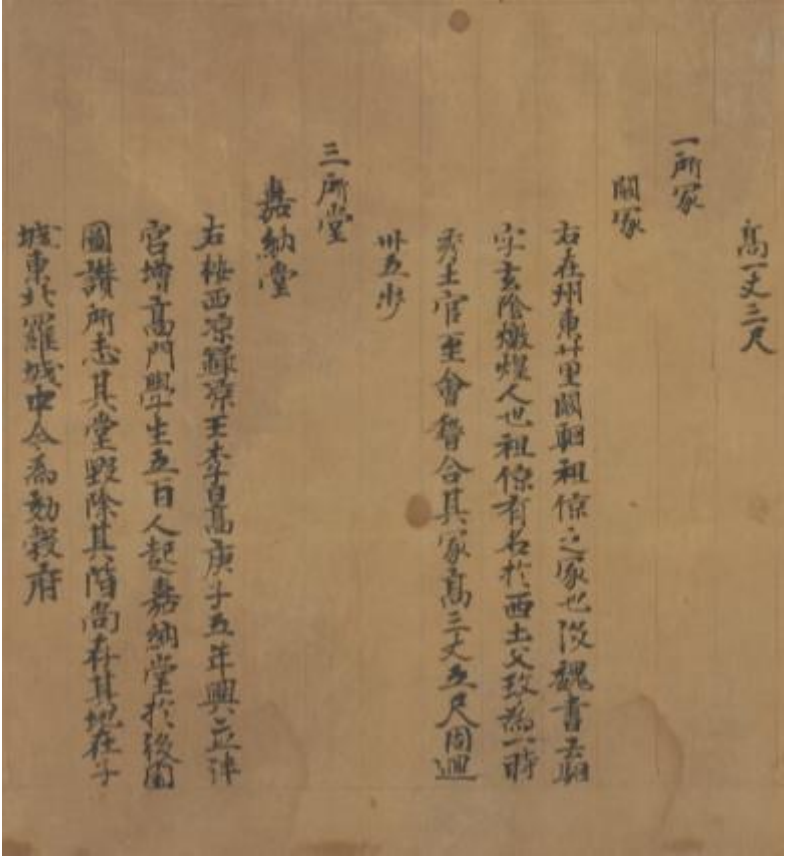 高一丈三尺
一所冢
闞冢
右在州東廿里闞駰祖倞之冢也後魏書云駰
字玄陰燉煌人也祖倞有名於西土父玖為一時
秀士官至會稽令其冢高三丈五尺周迴
卅五步
三所堂
嘉納堂
右按西涼錄涼王李暠庚子五年興立泮
宮增高門學生五百人起嘉納堂於後園
圖讚所志其堂毀除其階尚存其地在子
城東北羅城中今為効穀府